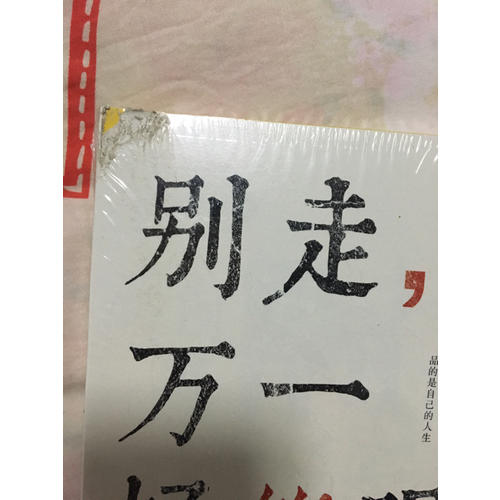 别走，
万一
品的是自己的人生